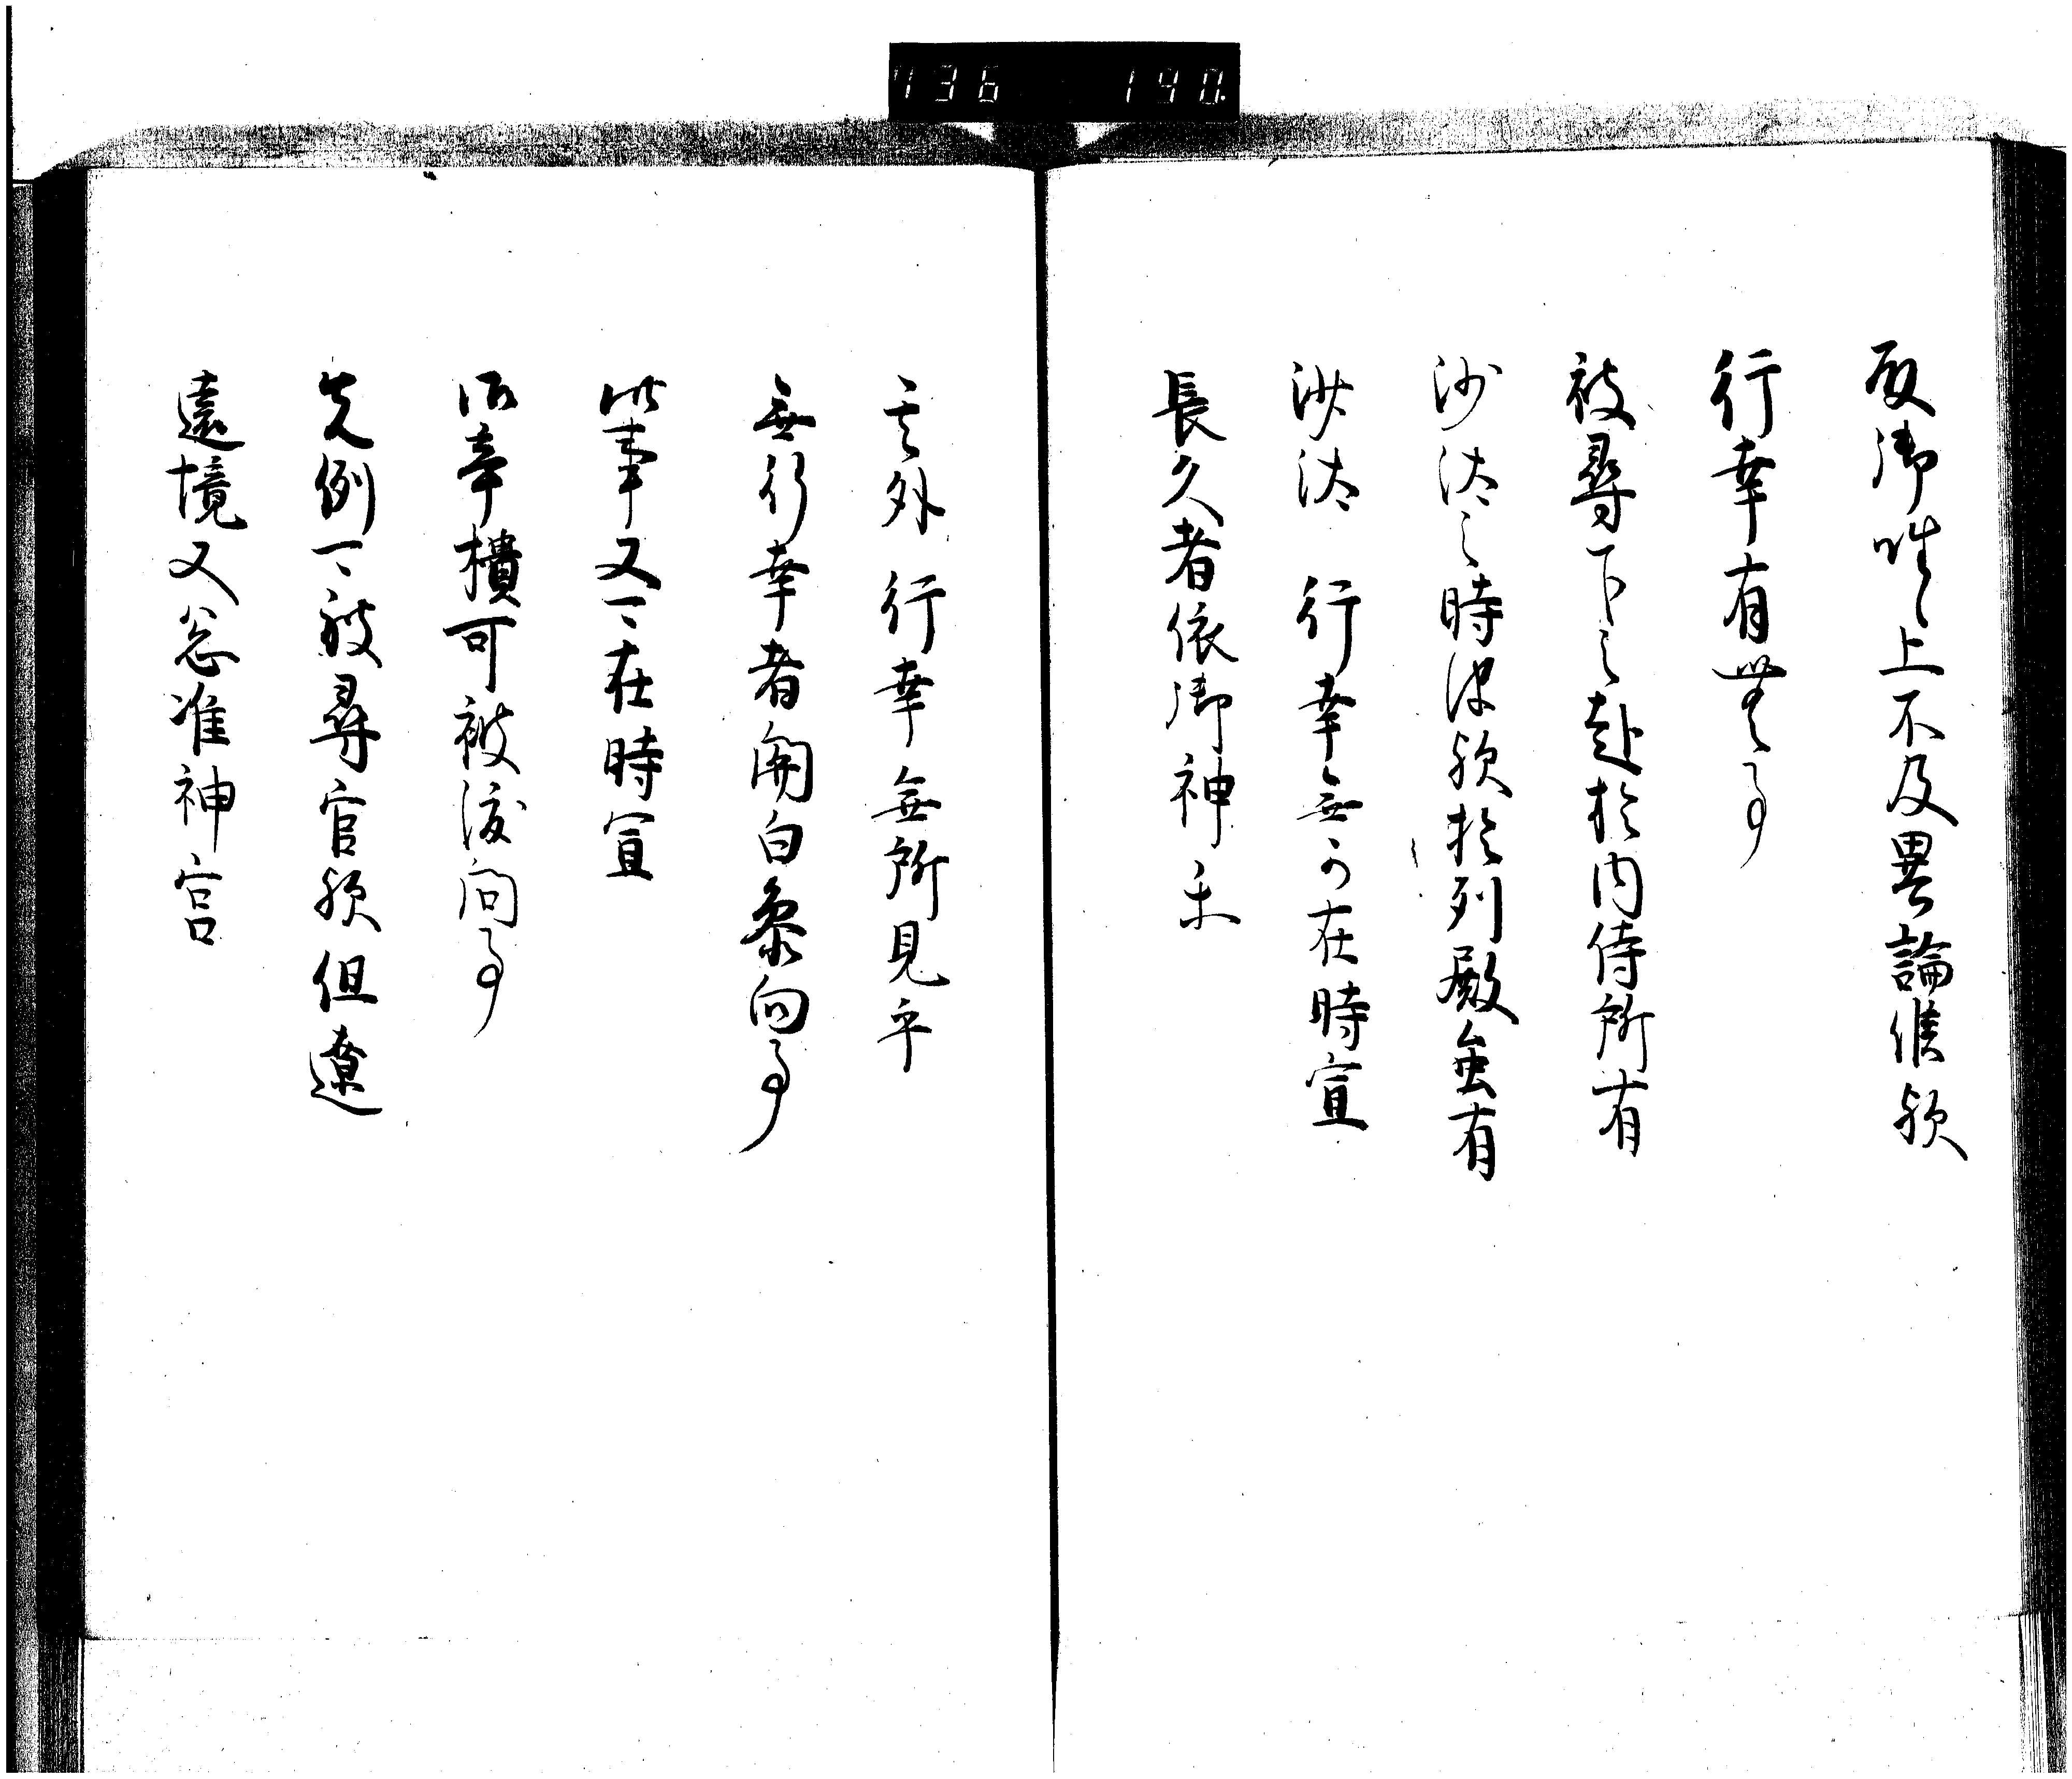 136 140.
殿御唯上不及異論候歟
行幸有無事
被尋下之趣於内侍所有
沙汰之時深歟於列殿虫有
沙汰行幸無可在時宜
長久者依御神
其外行幸無所見乎
無行幸者関白参向事
此事又可在時宜
御辛櫃可被渡向事
先例可被尋官歟但遼
遠境又忩准神宮